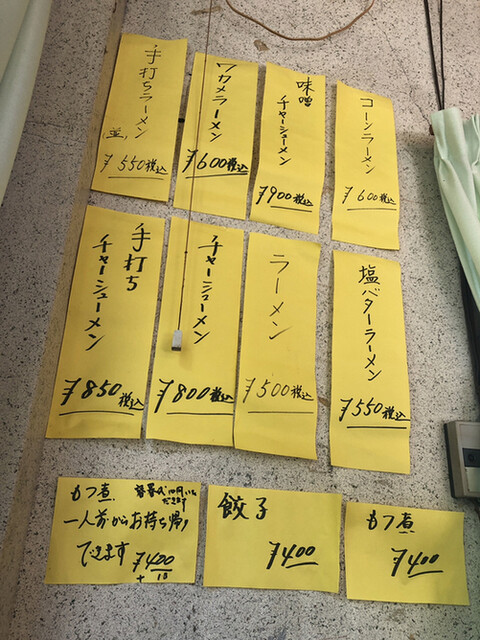 手打ちラーメン
並
¥550税込
ワカメラーメン
¥600税込
味噌
チャーシューメン
¥900税込
コーンラーメン
¥600税込
手打ち
チャーシューメン
¥850税込
チャーシューメン
¥800税込
ラーメン
¥500税込
塩バターラーメン
¥550税込
もつ煮
容器代10円いただきます
一人前からお持ち帰り
できます ¥400
+10
餃子
¥400
もつ煮
¥400